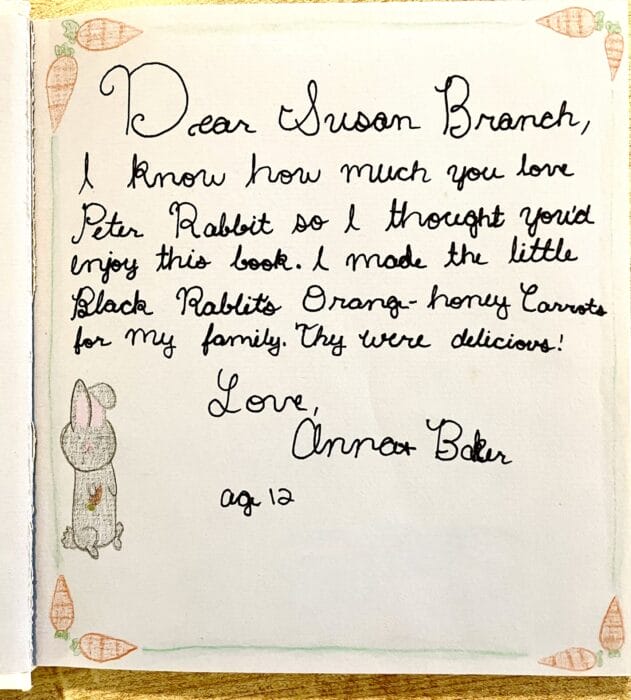 Dear Susan Branch,
I know how much you love
Peter Rabbit so I thought you'd
enjoy this book. I made the little
Black Rabbit's Orange-honey Carrots
for my family. Thy were delicious!
Love,
Anna Baker
age 12